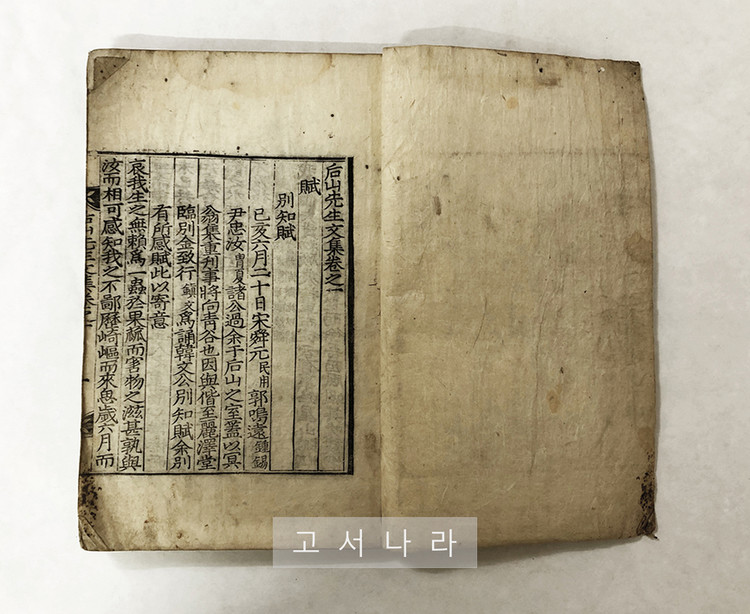 后山先生文集卷之一
賦
別知賦
己亥六月二十日宋舜元民用郭鳴遠鍾錫
尹忠汝胄夏諸公過余于后山之室蓋以冥
翁集重刋事將向靑谷也因與偕至麗澤堂
臨別金致行鎭文爲誦韓文公別知賦余別
有所感賦此以寄意
哀我生之無賴爲一蟲於果蓏而害物之滋甚孰與
汝而相可感知我之不鄙歷崎嶇而來思歲六月而
后山先生文集卷之一
고서나라